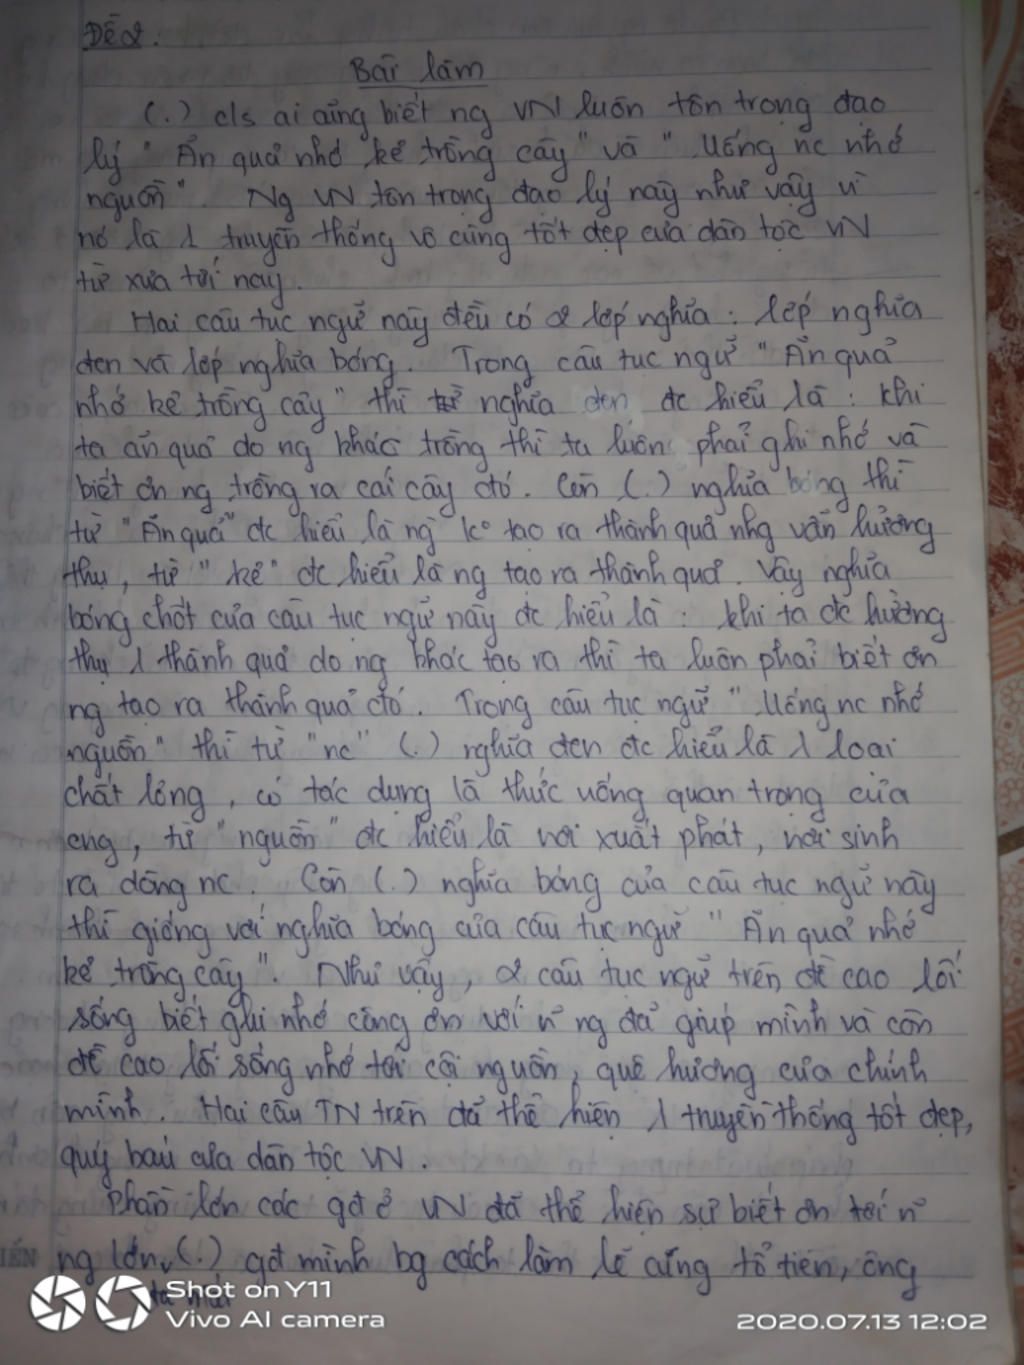 Đề 2.
Bài làm
(.) cls ai cũng biết ng VN luôn tôn trọng đạo
lý " Ăn quả nhớ kẻ trồng cây " và " Uống nc nhớ
nguồn ". Ng VN tôn trọng đạo lý này như vậy vì
nó là 1 truyền thống vô cùng tốt đẹp của dân tộc VN
từ xưa tới nay.
Hai câu tục ngữ này đều có 2 lớp nghĩa : lớp nghĩa
đen và lớp nghĩa bóng. Trong câu tục ngữ " Ăn quả
nhớ kẻ trồng cây " thì nghĩa đen đc hiểu là : khi
ta ăn quả do ng khác trồng thì ta luôn phải ghi nhớ và
biết ơn ng trồng ra cái cây đó. Còn (.) nghĩa bóng thì
từ " Ăn quả " đc hiểu là ng ko tạo ra thành quả nhg vẫn hưởng
thụ, từ " kẻ " đc hiểu là ng tạo ra thành quả. Vậy nghĩa
bóng chốt của câu tục ngữ này đc hiểu là : khi ta đc hưởng
thụ 1 thành quả do ng khác tạo ra thì ta luôn phải biết ơn
ng tạo ra thành quả đó. Trong câu tục ngữ " Uống nc nhớ
nguồn " thì từ "nc" (.) nghĩa đen đc hiểu là 1 loại
chất lỏng, có tác dụng là thức uống quan trọng của
cng, từ " nguồn " đc hiểu là nơi xuất phát, nơi sinh
ra dòng nc. Còn (.) nghĩa bóng của câu tục ngữ này
thì giống với nghĩa bóng của câu tục ngữ " Ăn quả nhớ
kẻ trồng cây ". Như vậy, 2 câu tục ngữ trên đề cao lối
sống biết ghi nhớ công ơn với n~ ng đã giúp mình và còn
đề cao lối sống nhớ tới cội nguồn, quê hương của chính
mình. Hai câu TN trên đã thể hiện 1 truyền thống tốt đẹp,
quý báu của dân tộc VN.
Phần lớn các gđ ở VN đã thể hiện sự biết ơn tới n~
ng lớn (.) gđ mình bg cách làm lễ cúng tổ tiên, ông
Shot on Y11
Vivo AI camera
2020.07.13 12:02